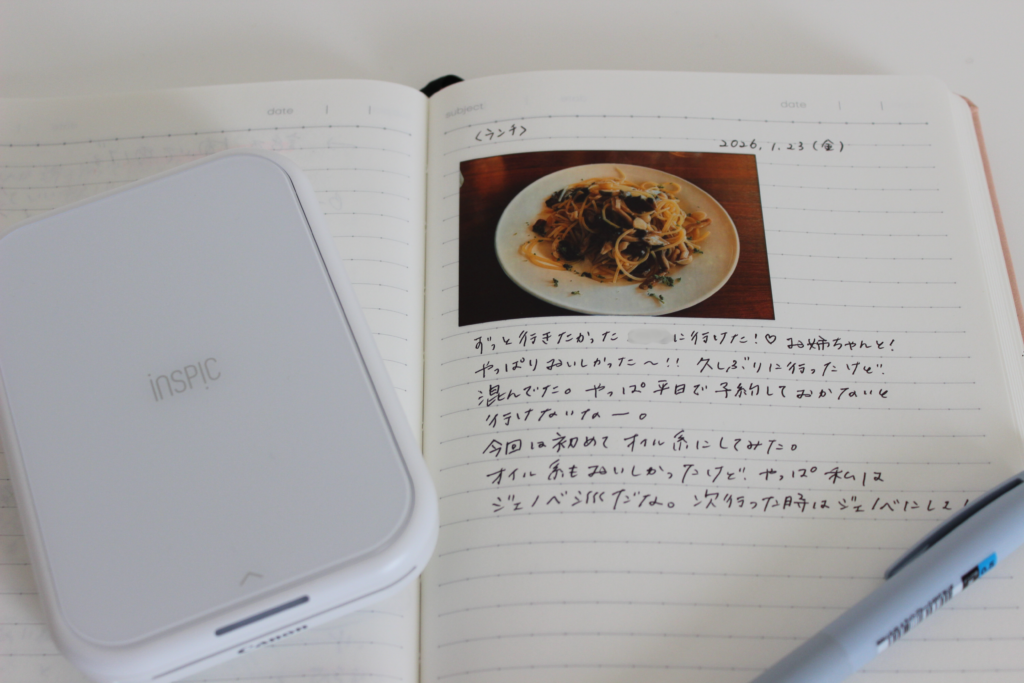 date
subject
date
<ランチ>
2026.1.23(金)
ずっと行きたかった に行けた!♡ お姉ちゃんと!
やっぱりおいしかった〜!! 久しぶりに行ったけど
混んでた。やっぱ平日で予約しておかないと
行けないなー。
今回は初めてオイル系にしてみた。
オイル系もおいしかったけど、やっぱ私は
ジェノベ派だな。次行った時はジェノベにしよ!
inspic
Canon